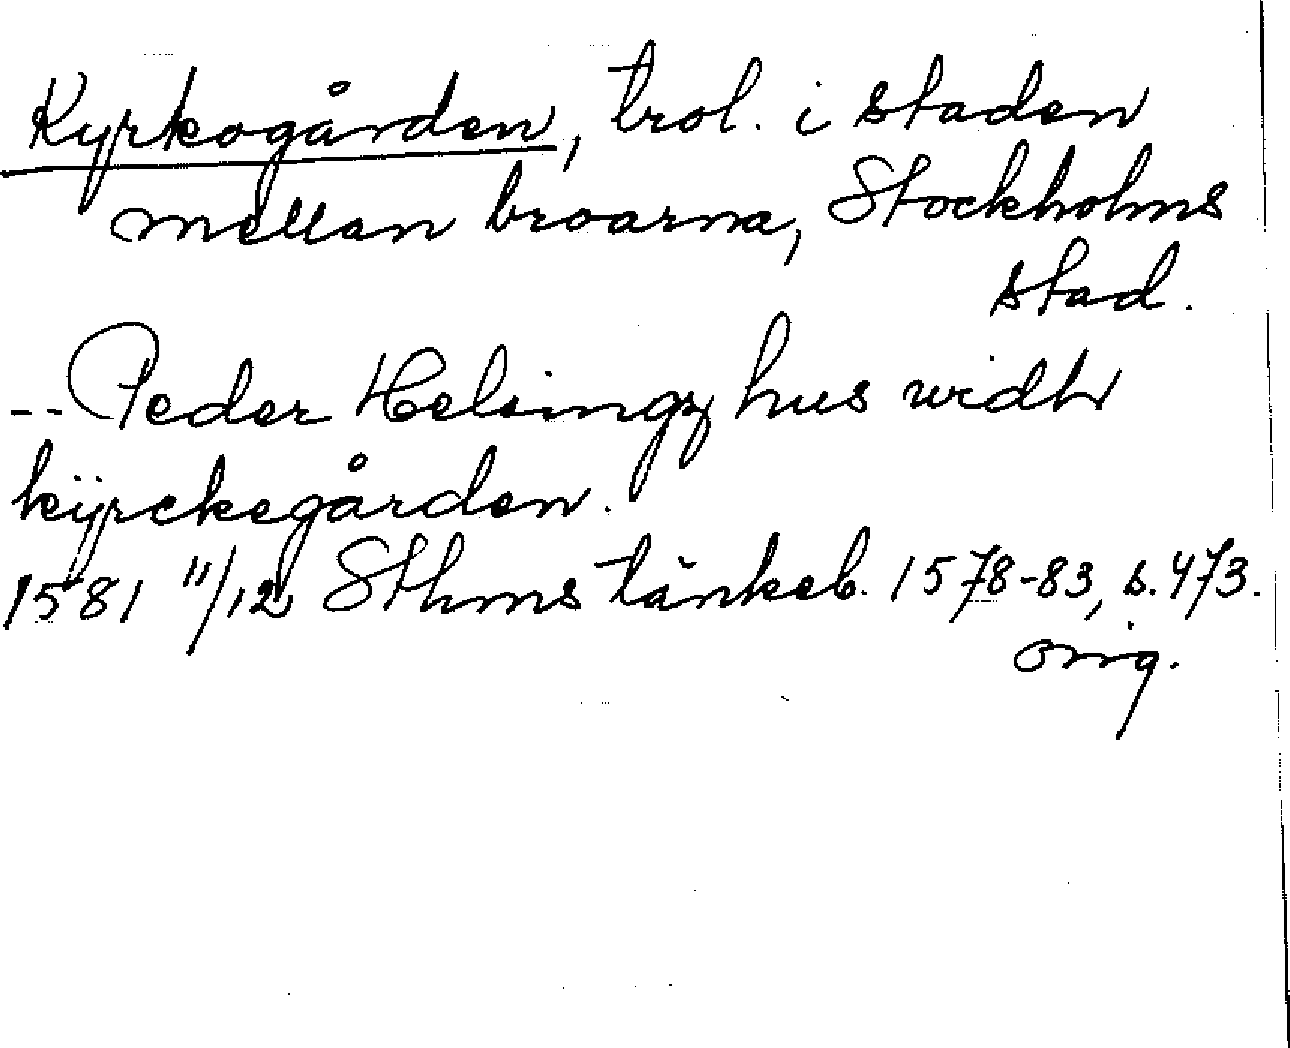 Kyrkogården, trol. i staden
mellan broarna, Stockholms
stad.
-- Peder Helsingz hus widh
kÿrckegården.
1581 11/12 Sthms tänkeb. 1578-83, s. 473.
orig.